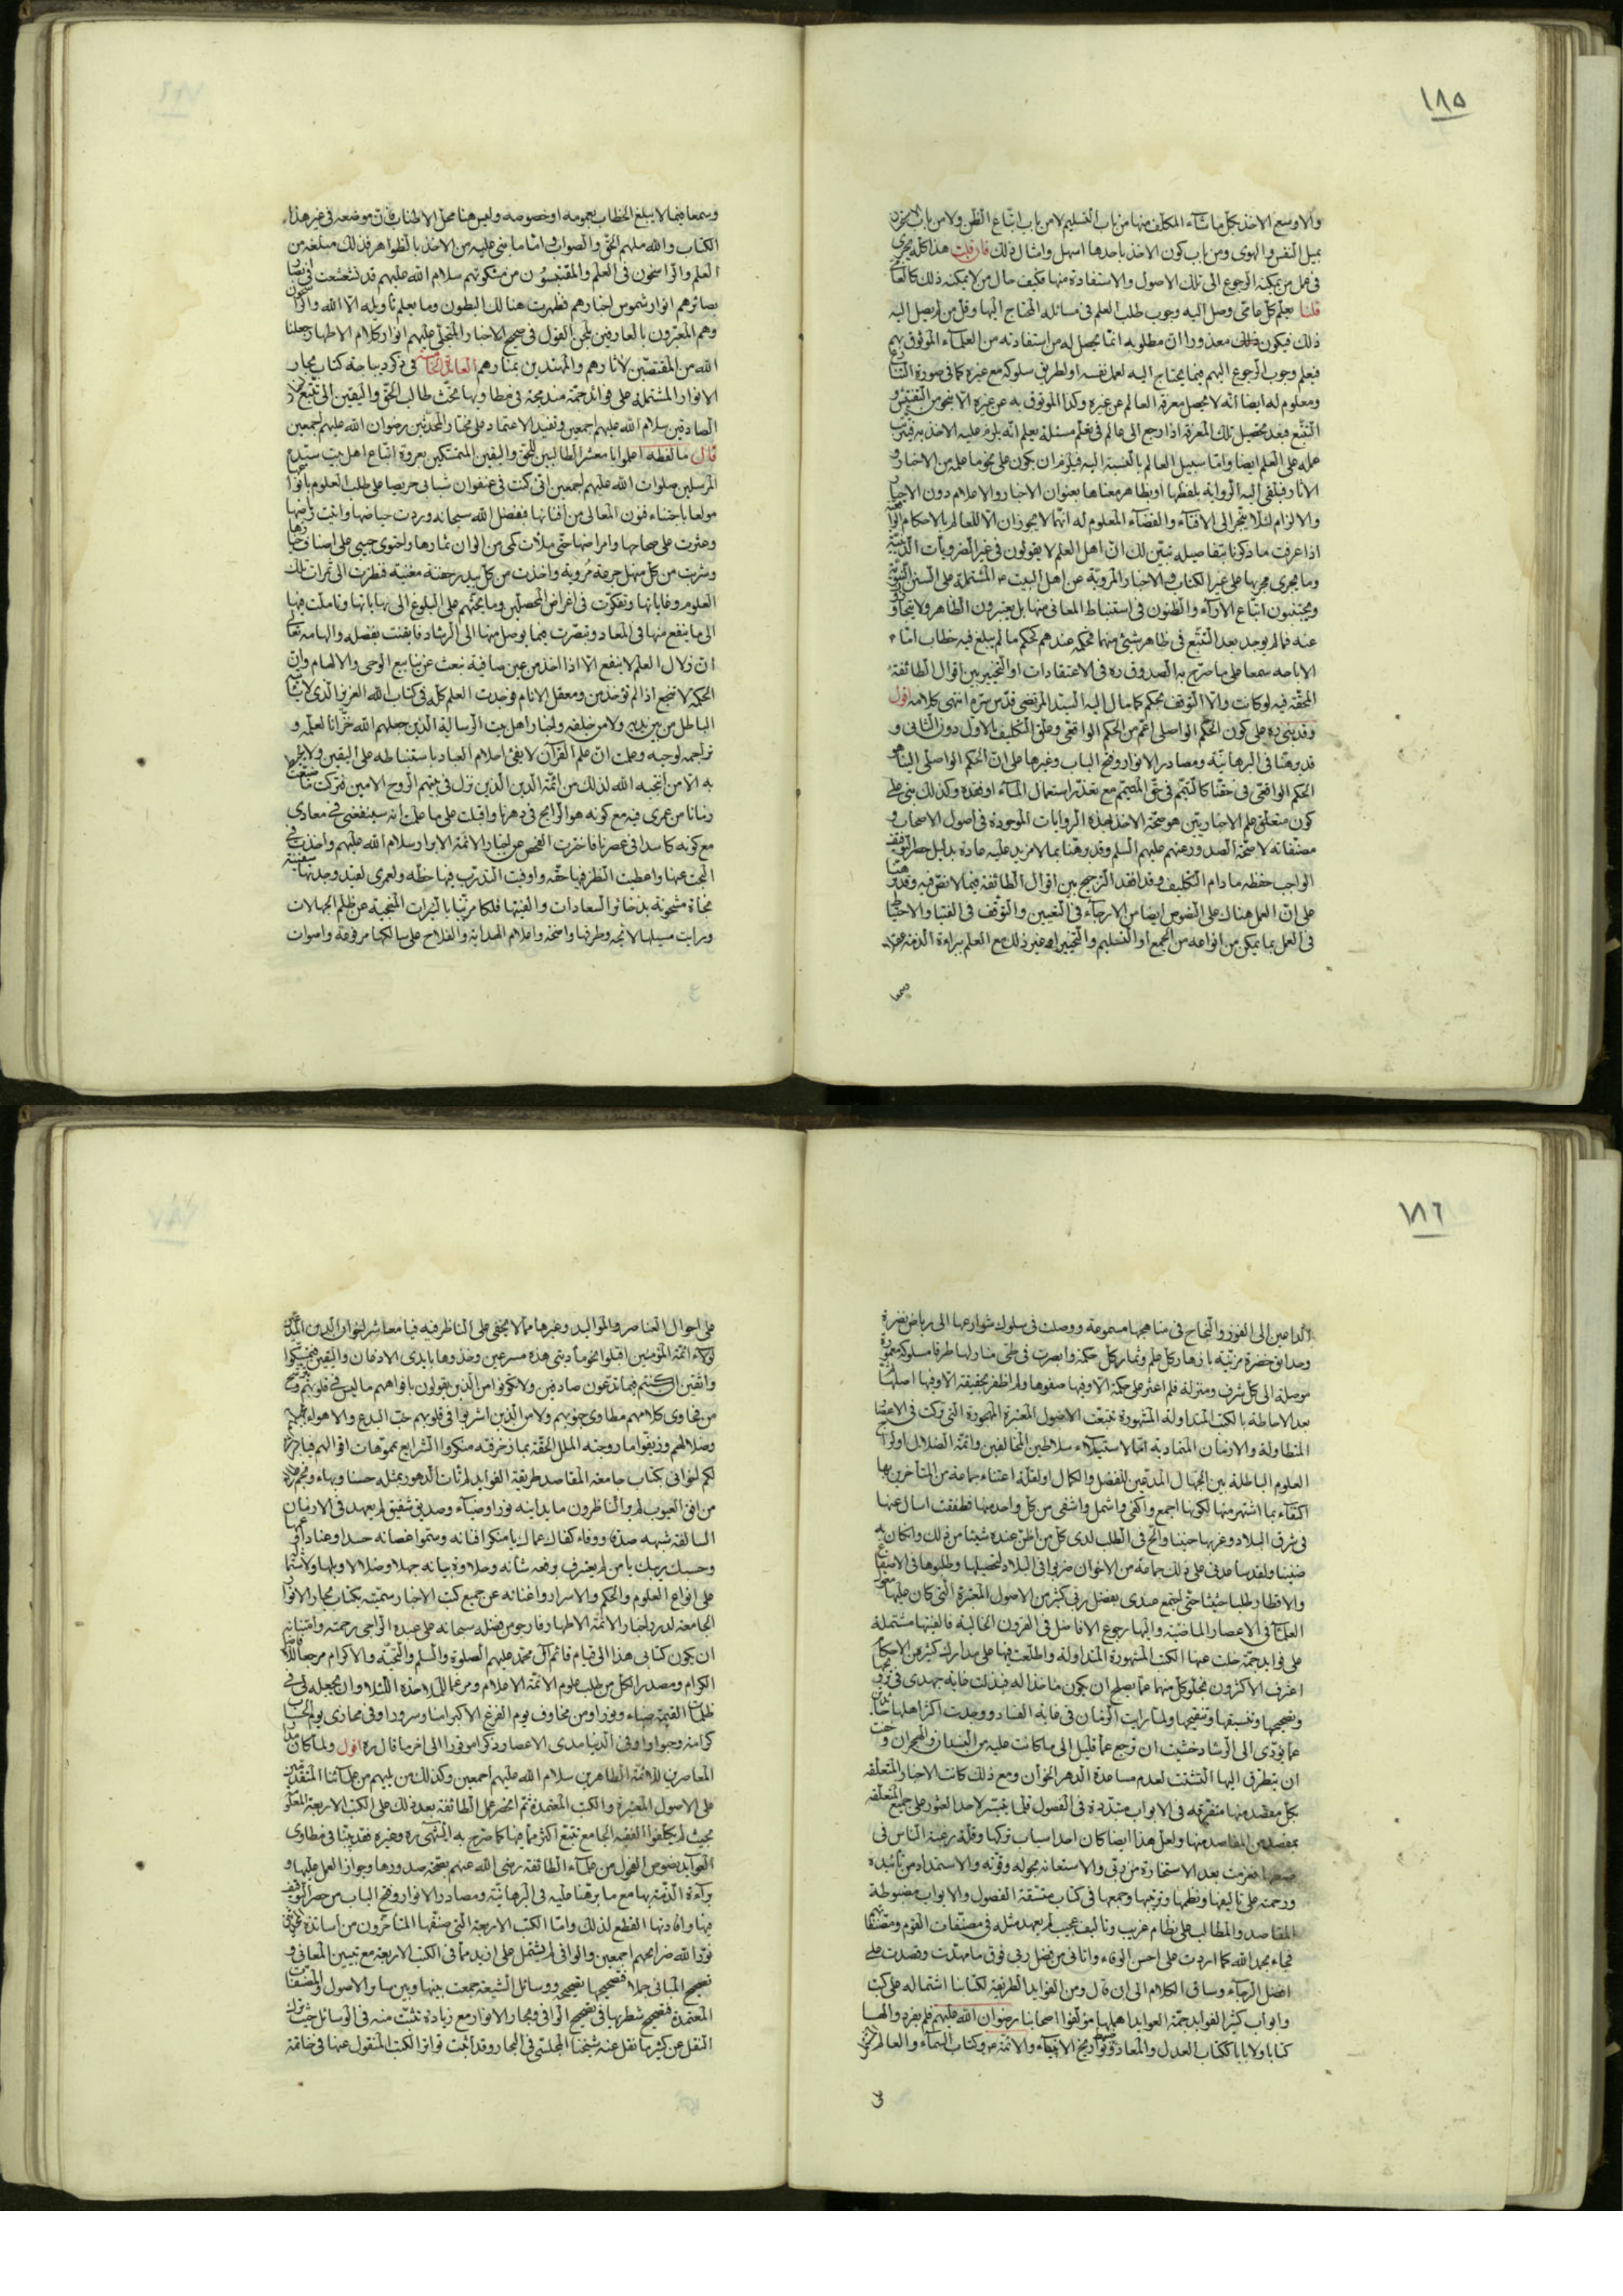 ١٨٥
والاوسع الاخذ بكل ما شاء المكلف منها من باب التسليم لا من باب اتباع الظن ولا من باب
بميل النفس والهوى ومن باب كون الاخذ باحدها اسهل وامثال ذلك فان قلت هذا كله يجرى
فى عمل من يمكنه الرجوع الى تلك الاصول والاستفادة منها فكيف حال من لا يمكنه ذلك
قلنا يعلم كل عامى وصل اليه وجوب طلب العلم فى مسائله المحتاج اليها وقل من لم يصل اليه
ذلك فيكون معذورا ان مطلوبه انما يحصل له من استفادته من العلماء الموثوق بهم
فيعلم وجوب الرجوع اليهم فيما يحتاج اليه لعمل نفسه او لطريق سلوكه مع غيره كما فى صورة
ومعلوم له ايضا انه لا يحصل معرفة العالم عن غيره وكذا الموثوق به عن غيره الا بنحو من التفتيش و
التتبع فبعد تحصيل تلك المعرفة اذا رجع الى عالم فى تعلم مسئلة يعلم انه يلزم عليه الاخذ به فترتب
عمله على العلم ايضا واما سبيل العالم بالنسبة اليه فيلزم ان يكون على نحو ما علمه من الاخبار و
الاثار فيلقى اليه الرواية بلفظها او بظاهر معناها بعنوان الاخبار والاعلام دون الاجبار
والالزام لئلا ينجر الى الافتاء والقضاء المعلوم له انهما لا يجوزان الا للعالم بالاحكام
اذا عرفت ما ذكرنا بتفاصيله تبين لك ان اهل العلم لا يقولون فى غير الضروريات الدينية
وما يجرى مجريها على غير الكتاب والاخبار المروية عن اهل البيت ع المشتملة على السنن
ويجتنبون اتباع الاراء والظنون فى استنباط المعانى منها بل يعتبرون الظاهر ولا
عنه فما لم يوجد بعد التتبع فى ظاهر شىء منهما فحكمه عندهم كحكم ما لم يبلغ فيه خطاب اما
الاباحه سمعا على ما صرح به الصدوق ره فى الاعتقادات او التخيير بين اقوال الطائفة
المحقة فيه لو كانت والا التوقف بحكم كما مال اليه السيد المرتضى قدس سره انتهى كلامه اقول
وقد بنى ره على كون الحكم الواصلى اعم من الحكم الواقعى وعلق التكليف بالاول دون الثانى و
قد برهنا فى البرهانية ومصادر الانوار وفتح الباب وغيرها على ان الحكم الواصلى الينا هو
الحكم الواقعى فى حقنا كالتيمم فى حق المتيمم مع تعذر استعمال الماء او فقده وكذلك بنى على
كون متعلق علم الاخباريين هو صحة الاخذ بهذه الروايات الموجودة فى اصول الاصحاب و
مصنفاته لا صحة الصدور عنهم عليهم السلم وقد برهنا بما لا مزيد عليه عادة بدليل
الواجب حفظه ما دام التكليف وقد افقد الترجيح بين اقوال الطائفة فيما لا نص فيه وقد
على ان العمل هناك على النصوص ايضا من الارجاء فى التعيين والتوقف فى الفتيا والاحتياط
فى العمل بما يمكن من انواعه من الجمع او التسليم والتخيير او غير ذلك مع العلم ببراءة الذمة
وسمعا فيما لا يبلغ الخطاب بعمومه او خصوصه وليس هنا محل الاطناب فان موضعه فى غير هذا
الكتاب والله ملهم الحق والصواب واما ما بنى عليه من الاخذ بالظواهر فذلك مبلغه من
العلم والراسخون فى العلم والمقتبسون من مشكوتهم سلام الله عليهم قد تشعشعت فى
بصائرهم انوار شموس اخبارهم فظهرت هنالك البطون وما يعلم تاويله الا الله والراسخون
وهم المعبرون بالعارفين بلحن القول فى صحيح الاخبار والمتجلى عليهم انوار كلام الاطهار جعلنا
الله من المقتصين لاثارهم والمهتدين بمنارهم فى ذكر ديباجة كتاب بحار
الانوار المشتملة على فوائد جمة مندمجة فى مطاويها تحث طالب الحق واليقين الى تتبع
الصادقين سلام الله عليهم اجمعين وتفيد الاعتماد على مختار المحدثين رضوان الله عليهم اجمعين
قال ما لفظه اعلموا يا معشر الطالبين للحق واليقين المتمسكين بعروة اتباع اهل بيت سيد
المرسلين صلوات الله عليهم اجمعين انى كنت فى عنفوان شبابى حريصا على طلب العلوم بانواعها
مولعا باجتناء فنون المعالى من افنانها فبفضل الله سبحانه وردت حياضها واتيت رياضها
وعثرت على صحاحها وامراضها حتى ملأت كمى من الوان ثمارها واحتوى جيبى على اصناف خيارها
وشربت من كل منهل جرعة مروية واخذت من كل بيدر حفنة مغنية فنظرت الى ثمرات تلك
العلوم وغاياتها وتفكرت فى اغراض المحصلين وما يحثهم على البلوغ الى نهاياتها وتاملت فيها
الى ما ينفع منها فى المعاد وتبصرت فيما يوصل منها الى الرشاد فايقنت بفضله والهامه تعالى
ان زلال العلم لا ينفع الا اذا اخذ من عين صافية نبعت عن ينابيع الوحى والالهام وان
الحكمة لا تنجع اذا لم تؤخذ من ومعقل الانام فوجدت العلم كله فى كتاب الله العزيز الذى لا
الباطل من بين يديه ولا من خلفه واخبار اهل بيت الرسالة الذين جعلهم الله خزانا لعلمه و
تراجمة لوحيه وعلمت ان علم القرآن لا يفى احلام العباد باستنباطه على اليقين ولا يحيط
به الا من انتجبه الله لذلك من ائمة الدين الذين نزل فى بيتهم الروح الامين فتركت ما ضيعت
زمانا من عمرى فيه مع كونه هو الرائج فى دهرنا واقبلت على ما علمت انه سينفعنى فى معادى
مع كونه كاسدا فى عصرنا فاخترت الفحص عن اخبار الائمة الابرار سلام الله عليهم واخذت فى
البحث عنها واعطيت النظر فيها حقه واوفيت التدرب فيها حظه ولعمرى لقد وجدتها سفينة
نجاة مشحونة بذخائر السعادات والفيتها فلكا مزينا بالنيرات المنجية عن ظلم الجهالات
ورايت سبلها لائحة وطرقها واضحة واعلام الهداية والفلاح على سالكها مرفوعة واصوات
١٨٦
الداعين الى الفوز والنجاح فى مناهجها مسموعة ووصلت فى سلوك شوارعها الى رياض نضرة
وحدائق خضرة مزينة بازهار كل علم وثمار كل حكمة وابصرت فى طى منازلها طرقا مسلوكة معمورة
موصلة الى كل شرف ومنزلة فلم اعثر على حكمة الا وفيها صفوها ولم اظفر بحقيقة الا وفيها اصلها ثم
بعد الاحاطة بالكتب المتداولة المشهورة تتبعت الاصول المعتبرة المهجورة التى تركت فى الاعصار
المتطاولة والازمان المتمادية اما لاستيلاء سلاطين المخالفين وائمة الضلال او لرواج
العلوم الباطلة بين الجهال المدعين للفضل والكمال او لقلة اعتناء جماعة من المتاخرين بها
اكتفاء بما اشتهر منها لكونها اجمع واكفى واشمل واشفى من كل واحد منها فطفقت اسال عنها
فى شرق البلاد وغربها حينا والح فى الطلب لدى كل من اظن عنده شيئا من ذلك وان كان به
ضنينا ولقد ساعدنى على ذلك جماعة من الاخوان ضربوا فى البلاد لتحصيلها وطلبوها فى الاصقاع
والاقطار طلبا حثيثا حتى اجتمع عندى بفضل ربى كثير من الاصول المعتبرة التى كان عليها معول
العلماء فى الاعصار الماضية واليها رجوع الافاضل فى القرون الخالية فالفيتها مشتملة
على فوايد جمة خلت عنها الكتب المشهورة المتداولة واطلعت فيها على مدارك كثير من الاحكام
اعترف الاكثرون بخلو كل منها عما يصلح ان يكون ماخذا له فبذلت غاية جهدى فى ترويجها
وتصحيحها وتنسيقها وتنقيحها ولما رايت الزمان فى غاية الفساد ووجدت اكثر اهلها
عما يؤدى الى الرشاد خشيت ان ترجع عما قليل الى ما كانت عليه من النسيان والهجران وخفت
ان يتطرق اليها التشتت لعدم مساعدة الدهر الخوان ومع ذلك كانت الاخبار المتعلقة
بكل مقصد منها متفرقة فى الابواب متبددة فى الفصول قلما يتيسر لاحد العثور على جميع المتعلقة
بمقصد من المقاصد منها ولعل هذا ايضا كان احد اسباب تركها وقلة رغبة الناس فى
ضبطها فعزمت بعد الاستخارة من ربى والاستعانة بحوله وقوته والاستمداد من تائيده
ورحمته على تاليفها ونظمها وترتيبها وجمعها فى كتاب متسقة الفصول والابواب مضبوطة
المقاصد والمطالب على نظام غريب وتاليف عجيب لم يعهد مثله فى مصنفات القوم ومصنفاتهم
فجاء بحمد الله كما اردت على احسن الوفاء واتانى من فضل ربى فوق ما مهدت وقصدت على
افضل الرجاء وساق الكلام الى ان قال ومن الفوايد الطريفة لكتابنا اشتماله على كتب
وابواب كثير الفوايد جمة العوايد اهملها مؤلفوا اصحابنا رضوان الله عليهم فلم يفردوا لها
كتابا ولا بابا ككتاب العدل والمعاد وتواريخ الانبياء والائمة ع وكتاب السماء والعالم
على احوال العناصر والمواليد وغيرها مما لا يخفى على الناظر فيه فيا معاشر اخوان الدين
لولاء ائمة المؤمنين اقبلوا نحو مأدبتى هذه مسرعين وخذوها بايدى الاذعان واليقين فتمسكوا
واثقين ان كنتم فيما تدعون صادقين ولا تكونوا من الذين يقولون بافواههم ما ليس فى قلوبهم
من فحاوى كلامهم مطاوى جنوبهم ولا من الذين اشربوا فى قلوبهم حب البدع والاهواء بجهلهم
وضلالهم وزيفوا ما روجته الملل الحقة بما زخرفته منكروا الشرايع بمموهات اقوالهم فيا
لكم اخوانى بكتاب جامعة المقاصد طريفة الفوايد لم تات الدهور بمثله حسنا وبهاء
من افق الغيوب لم ير الناظرون ما يدانيه نورا وضياء وصديق شفيق لم يعهد فى الازمان
السالفة شبهه صدقا ووفاء كفاك عماك يا منكر افنانه وسمو اغصانه حسدا وعنادا
وحسبك ريبك يا من لم يعترف برفعة شأنه وحلاوة بيانه جهلا وضلالا وبلها ولاشتماله
على انواع العلوم والحكم والاسرار واغنائه عن جميع كتب الاخبار سميته بكتاب بحار الانوار
الجامعة لدرر اخبار الائمة الاطهار فارجو من فضله سبحانه على عبده الراجى رحمته وامتنانه
ان يكون كتابى هذا الى قيام قائم آل محمد عليهم الصلوة والسلم والتحية والاكرام مرجعا للافاضل
الكرام ومصدرا لكل من طلب علوم الائمة الاعلام ومرغما للملاحدة اللئام وان يجعله لى فى
ظلمات القيمة ضياء ونورا ومن مخاوف يوم الفزع الاكبر امنا وسرورا وفى مخازى يوم الحساب
كرامة وحبورا وفى الدنيا مدى الاعصار ذكرا موفورا الى اخر ما قال ره اقول ولما كان
المعاصرين للائمة الطاهرين سلام الله عليهم اجمعين وكذلك من يليهم من علمائنا المتقدمين
على الاصول المعتبرة والكتب المعتمدة ثم انحصر عمل الطائفة بعد ذلك على الكتب الاربعة
بحيث لم يكلفوا الفقيه الجامع تتبع اكثر مما فيها كما صرح به الشهيد ره وغيره فقد بينا فى مطاوى
العوايد نصوص الفحول من علماء الطائفة رضى الله عنهم بصحة صدورها وجواز العمل عليها و
براءة الذمة بها مع ما برهنا عليه فى البرهانية ومصادر الانوار وفتح الباب من حصر
بها وافادتها القطع لذلك واما الكتب الاربعة التى صنفها المتاخرون من اساتذة
نور الله ضرايحهم اجمعين والوافى لم يشتمل على ازيد مما فى الكتب الاربعة مع تبيين المعانى و
تصحيح المبانى جملا فتصحيحها تصحيحه ووسائل الشيعة جمعت بينها وبين ساير الاصول والمصنفات
المعتمدة فتصحيح شطرها فى تصحيح الوافى وبحار الانوار مع زيادة تثبت منه فى الوسائل حيث
النقل عن كثير ما نقل عنه شيخنا المجلسى فى البحار وقد اثبت تواتر الكتب المنقول عنها فى خاتمة